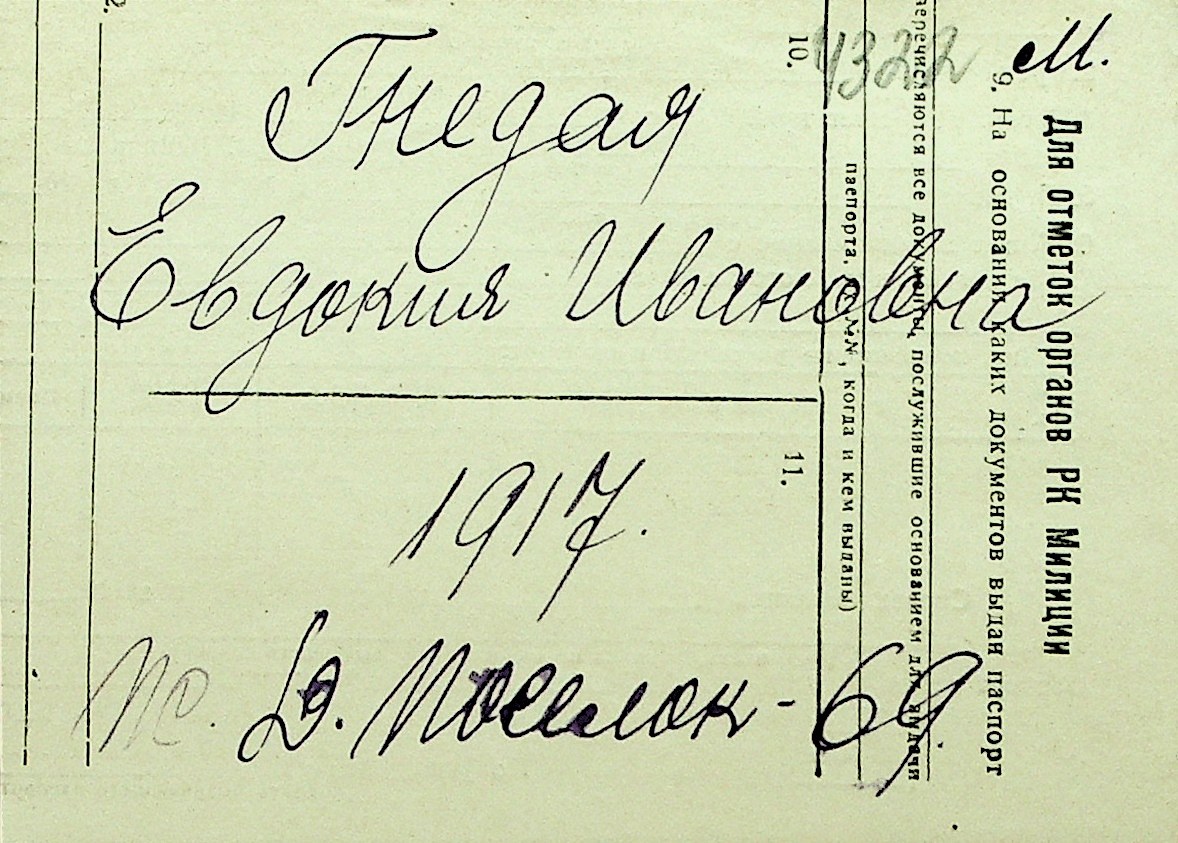 4322 М.
Гнедая
Евдокия Ивановна
1917.
Д. Поселок - 69
Для отметок органов РК Милиции
9. На основании каких документов выдан паспорт
перечисляются все документы, послужившие основанием для выдачи
паспорта, №№, когда и кем выданы)
10.
11.
2.